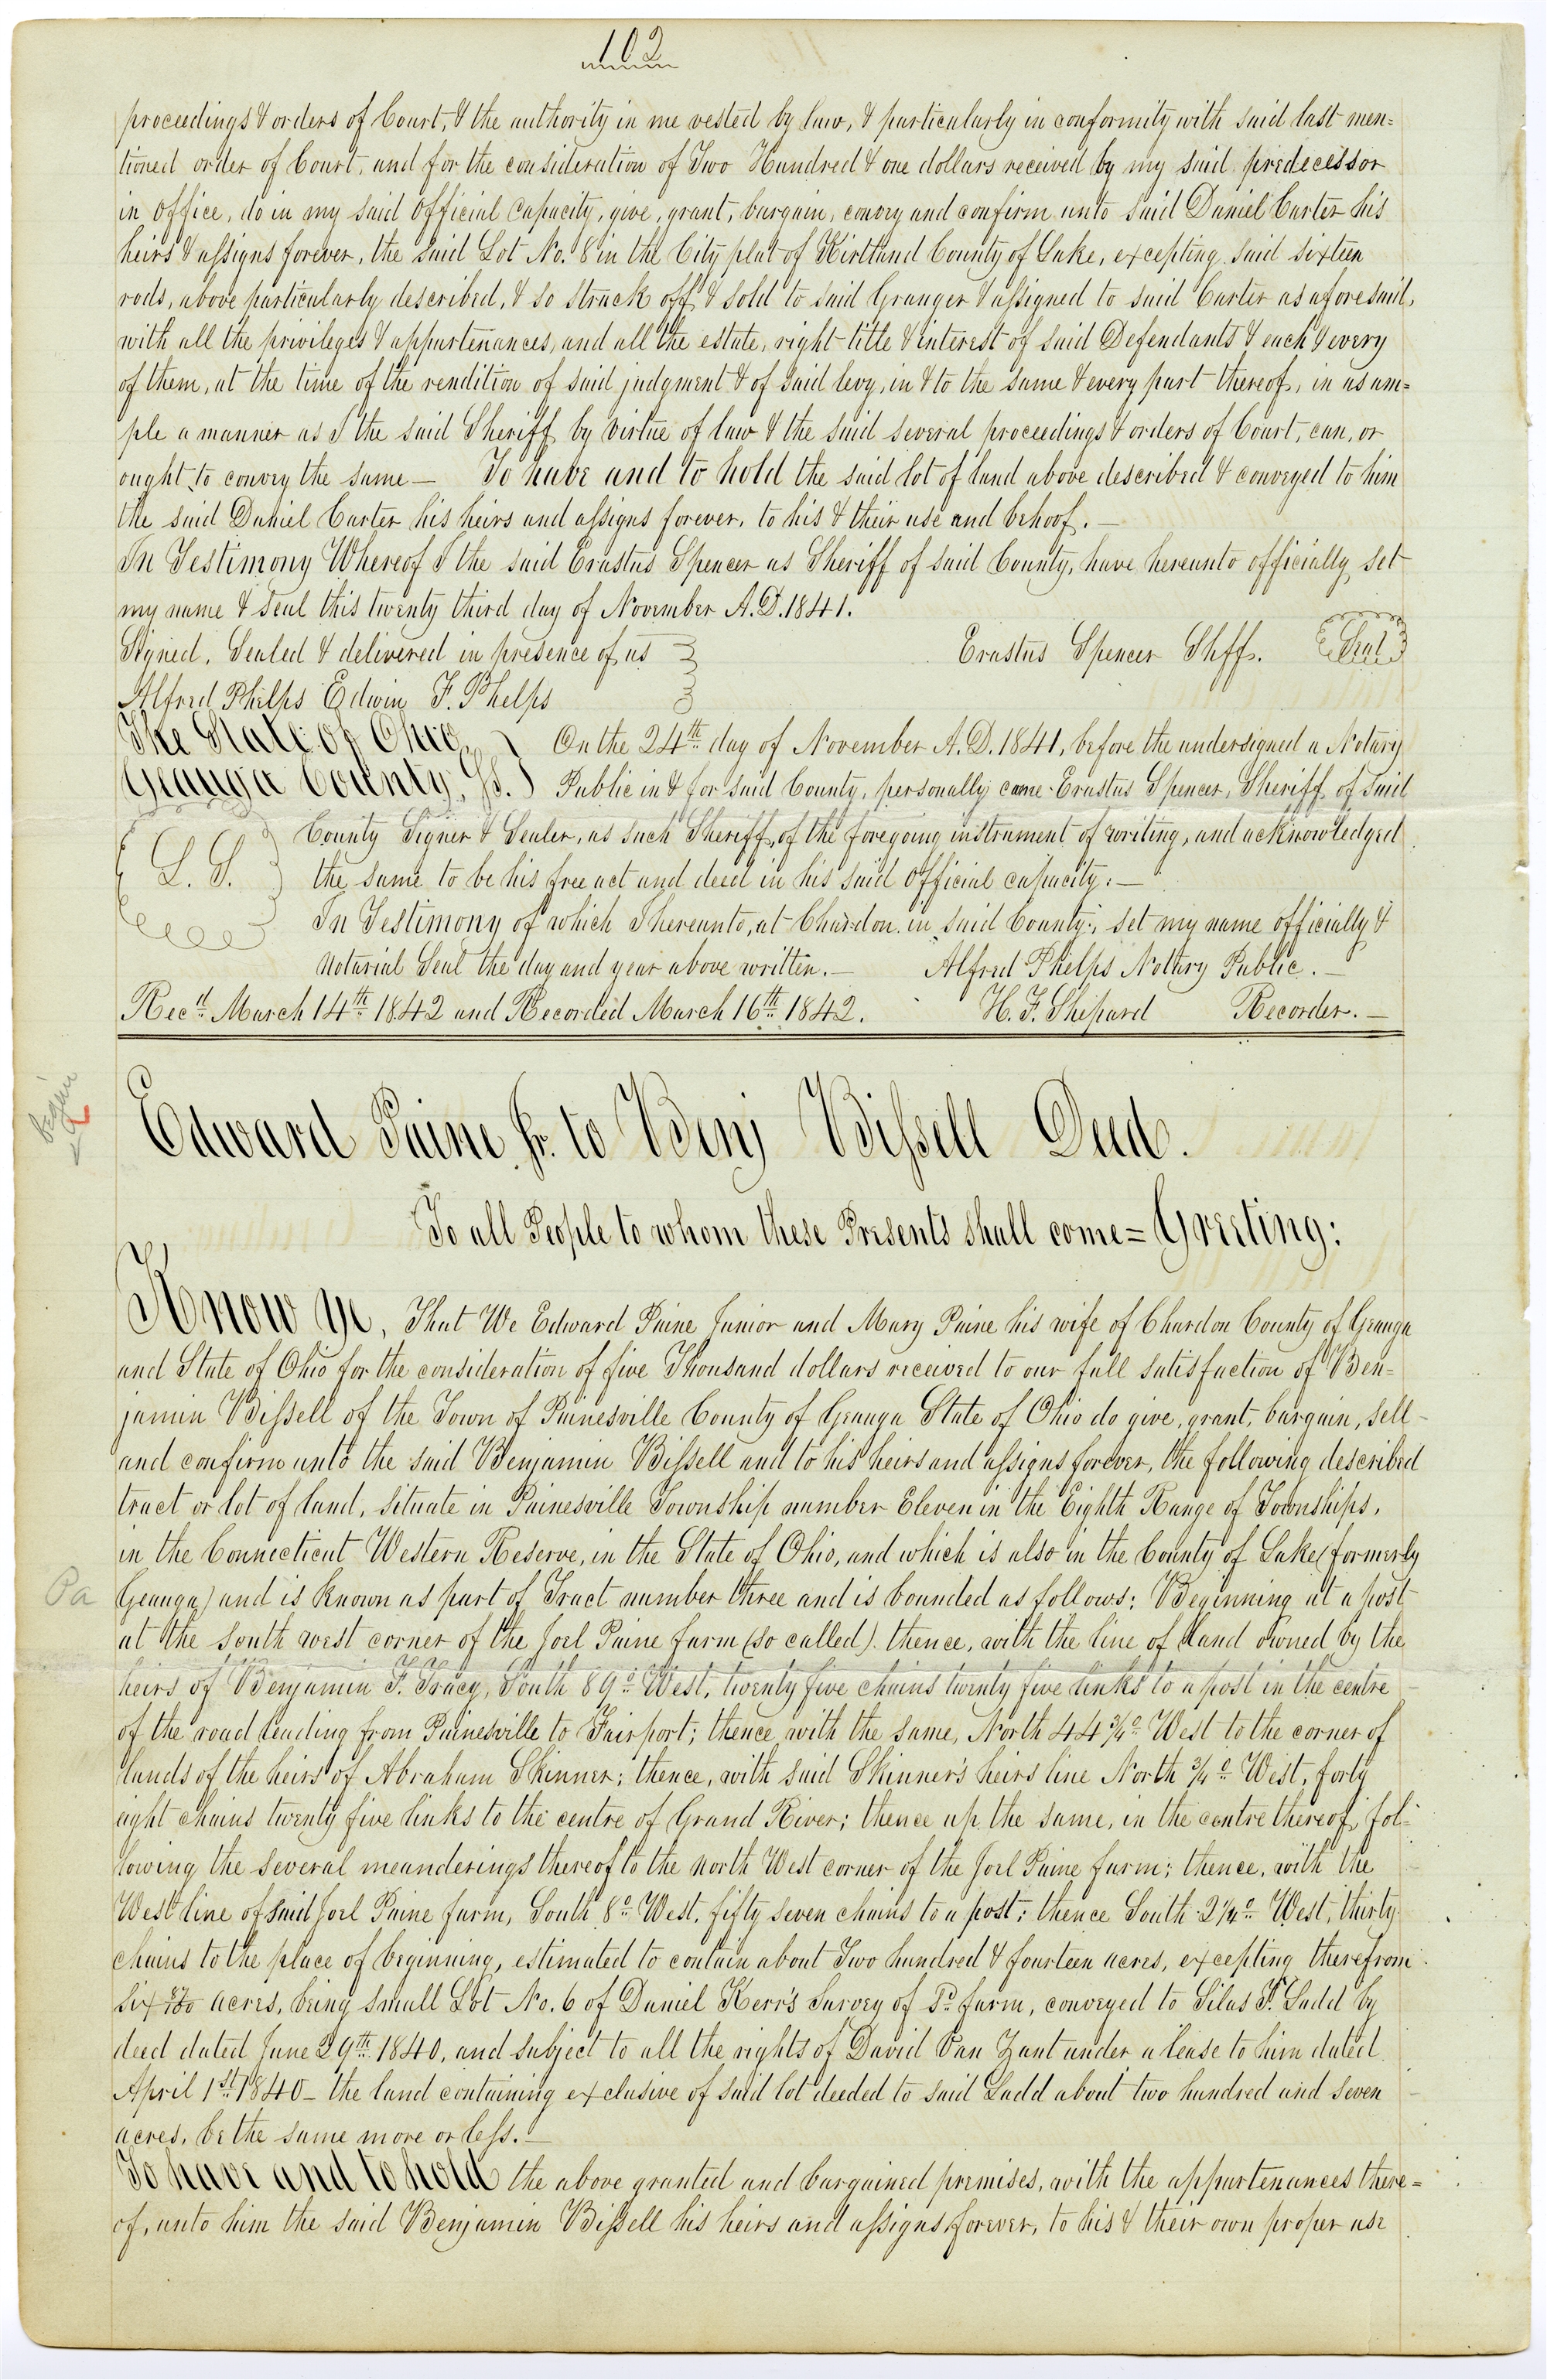 102
proceedings & orders of Court, & the authority in me vested by law, & particularly in conformity with said last men=
tioned order of Court, and for the consideration of Two Hundred & one dollars received by my said predecessor
in office, do in my said official capacity, give, grant, bargain, convey and confirm unto said Daniel Carter his
heirs & assigns forever, the said Lot No. 8 in the City plat of Kirtland County of Lake, excepting said sixteen
rods, above particularly described, & so struck off & sold to said Granger & assigned to said Carter as aforesaid,
with all the privileges & appurtenances, and all the estate, right title & interest of said Defendants & each & every
of them, at the time of the rendition of said judgment & of said levy, in & to the same & every part thereof, in as am=
ple a manner as I the said Sheriff by virtue of law & the said several proceedings & orders of Court, can, or
ought to convey the same — To have and to hold the said lot of land above described & conveyed to him
the said Daniel Carter his heirs and assigns forever, to his & their use and behoof. —
In Testimony Whereof I the said Erastus Spencer as Sheriff of said County, have hereunto officially set
my name & seal this twenty third day of November A.D. 1841.
Signed, Sealed & delivered in presence of us Erastus Spencer Shff. Seal
Alfred Phelps Edwin F. Phelps
The State of Ohio } On the 24th day of November A.D. 1841, before the undersigned a Notary
Geauga County, Ss. } Public in & for said County, personally came Erastus Spencer, Sheriff of said
County Signer & Sealer, as such Sheriff, of the foregoing instrument of writing, and acknowledged
L. S. the same to be his free act and deed in his said official capacity. —
In Testimony of which I hereunto, at Chardon in said County, set my name officially &
Notarial Seal the day and year above written. — Alfred Phelps Notary Public. —
Recd March 14th 1842 and Recorded March 16th 1842. H. F. Shepard Recorder. —
begin
Edward Paine Jr. to Benj Bissell Deed.
To all People to whom these Presents shall come = Greeting:
Know ye, That We Edward Paine Junior and Mary Paine his wife of Chardon County of Geauga
and State of Ohio for the consideration of five Thousand dollars received to our full satisfaction of Ben=
jamin Bissell of the Town of Painesville County of Geauga State of Ohio do give, grant, bargain, sell
and confirm unto the said Benjamin Bissell and to his heirs and assigns forever, the following described
tract or lot of land, situate in Painesville Township number Eleven in the Eighth Range of Townships,
in the Connecticut Western Reserve, in the State of Ohio, and which is also in the County of Lake (formerly
Pa Geauga) and is known as part of Tract number three and is bounded as follows: Beginning at a post
at the south west corner of the Joel Paine farm (so called). thence, with the line of land owned by the
heirs of Benjamin F. Tracy, South 89° West, twenty five chains twenty five links to a post in the centre
of the road leading from Painesville to Fairport; thence with the same, North 44 3/4° West to the corner of
lands of the heirs of Abraham Skinner; thence, with said Skinner's heirs line North 3/4° West, forty
eight chains twenty five links to the centre of Grand River; thence up the same, in the centre thereof, fol=
lowing the several meanderings thereof to the north West corner of the Joel Paine farm; thence, with the
West line of said Joel Paine farm, South 8° West, fifty seven chains to a post; thence South 2 1/4° West, thirty
chains to the place of beginning, estimated to contain about Two hundred & fourteen acres, excepting therefrom
six acres, being small Lot No. 6 of Daniel Kerr's Survey of sd farm, conveyed to Silas T. Ladd by
deed dated June 29th 1840, and subject to all the rights of David Van Zant under a lease to him dated
April 1st 1840 — the land containing exclusive of said lot deeded to said Ladd about two hundred and seven
acres, be the same more or less. —
To have and to hold the above granted and bargained premises, with the appurtenances there=
of, unto him the said Benjamin Bissell his heirs and assigns forever, to his & their own proper use